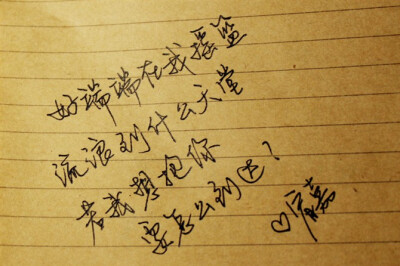 好端端在我摇篮
流浪到什么天堂
若我想抱你
要怎么到达？
♡